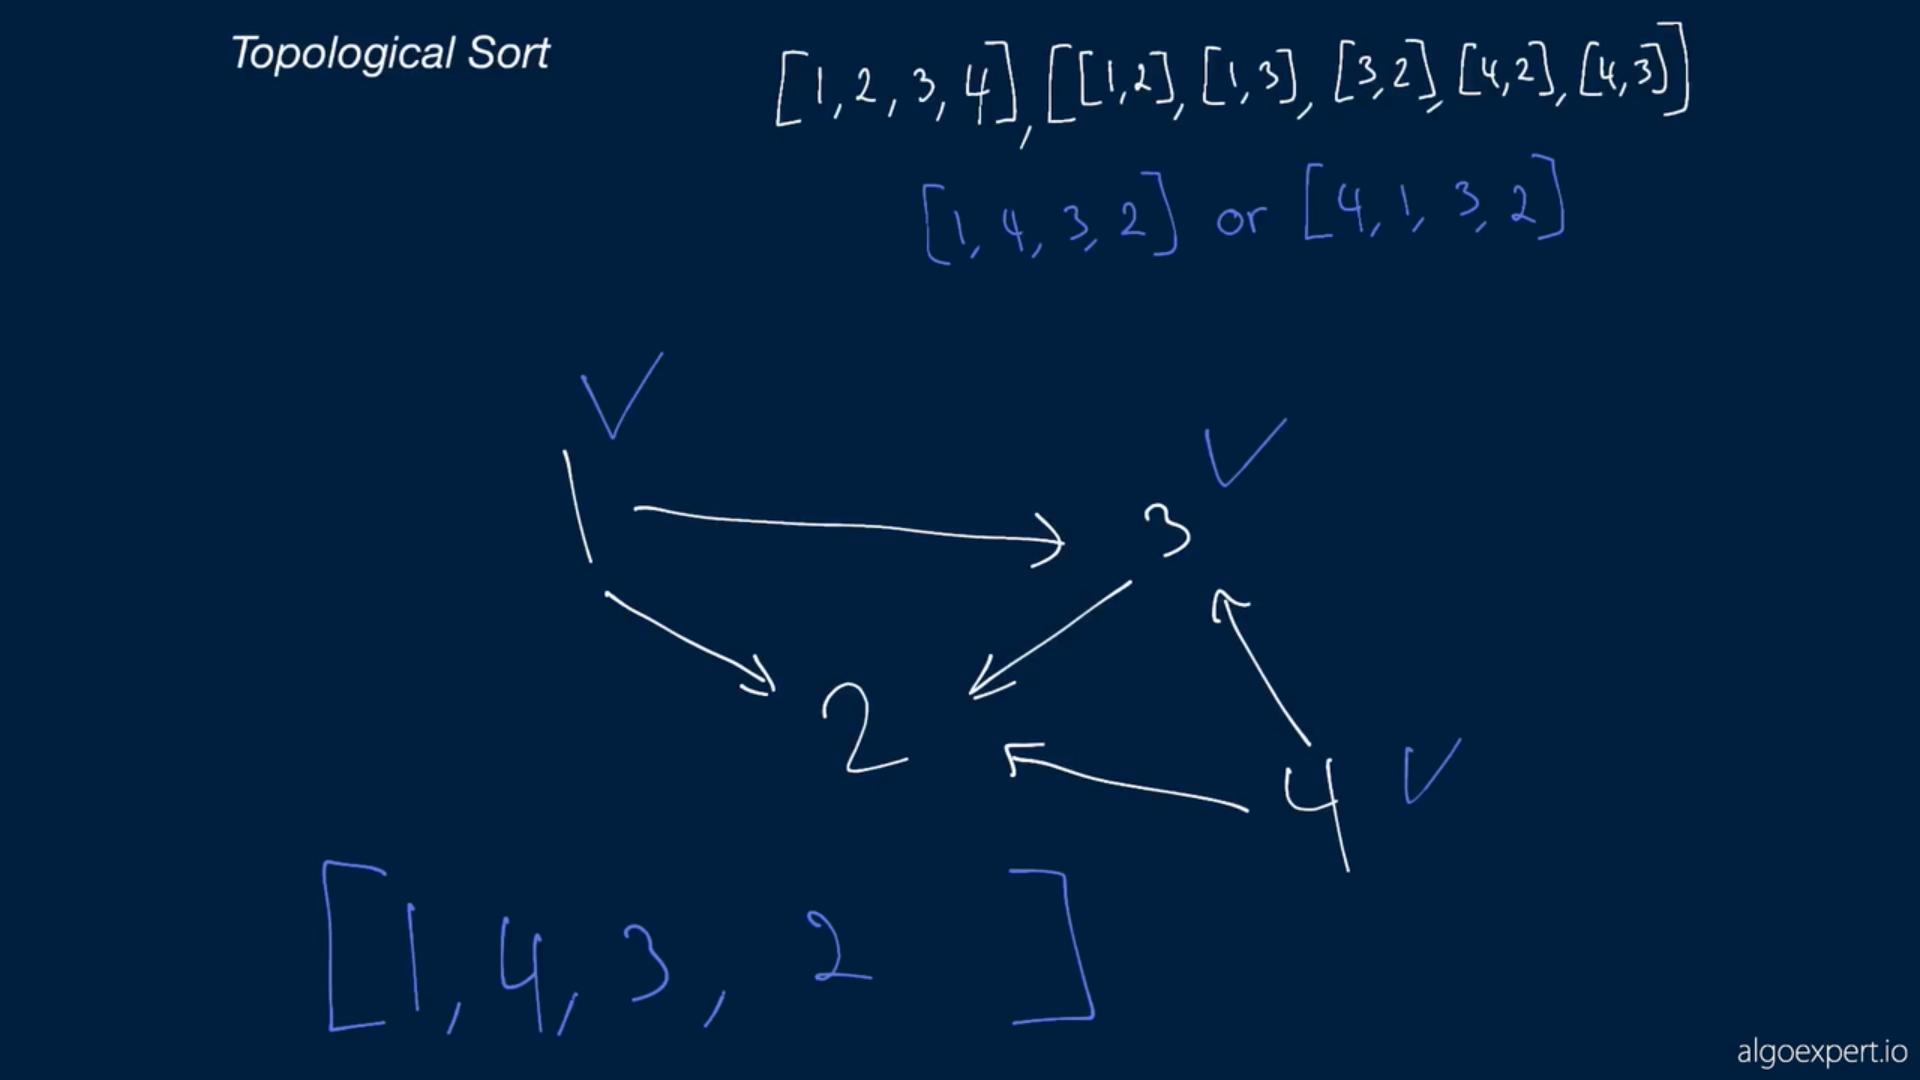 Topological Sort
[1, 2, 3, 4], [[1,2], [1,3], [3,2], [4,2], [4,3]]
[1, 4, 3, 2] or [4, 1, 3, 2]
1
3
2
4
[1, 4, 3, 2 ]
algoexpert.io